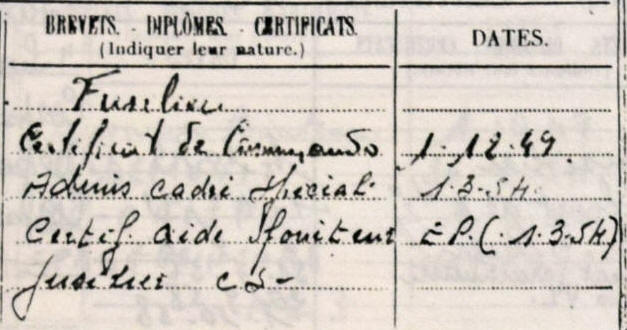 BREVETS. - DIPLÔMES. - CERTIFICATS.
(Indiquer leur nature.)
DATES.
Fuselier
Certificat de Commando 1.12.49.
Admis cadre spécial 1.3.54.
Certif. aide Moniteur E.P. (.1.3.54)
fusilier CS-